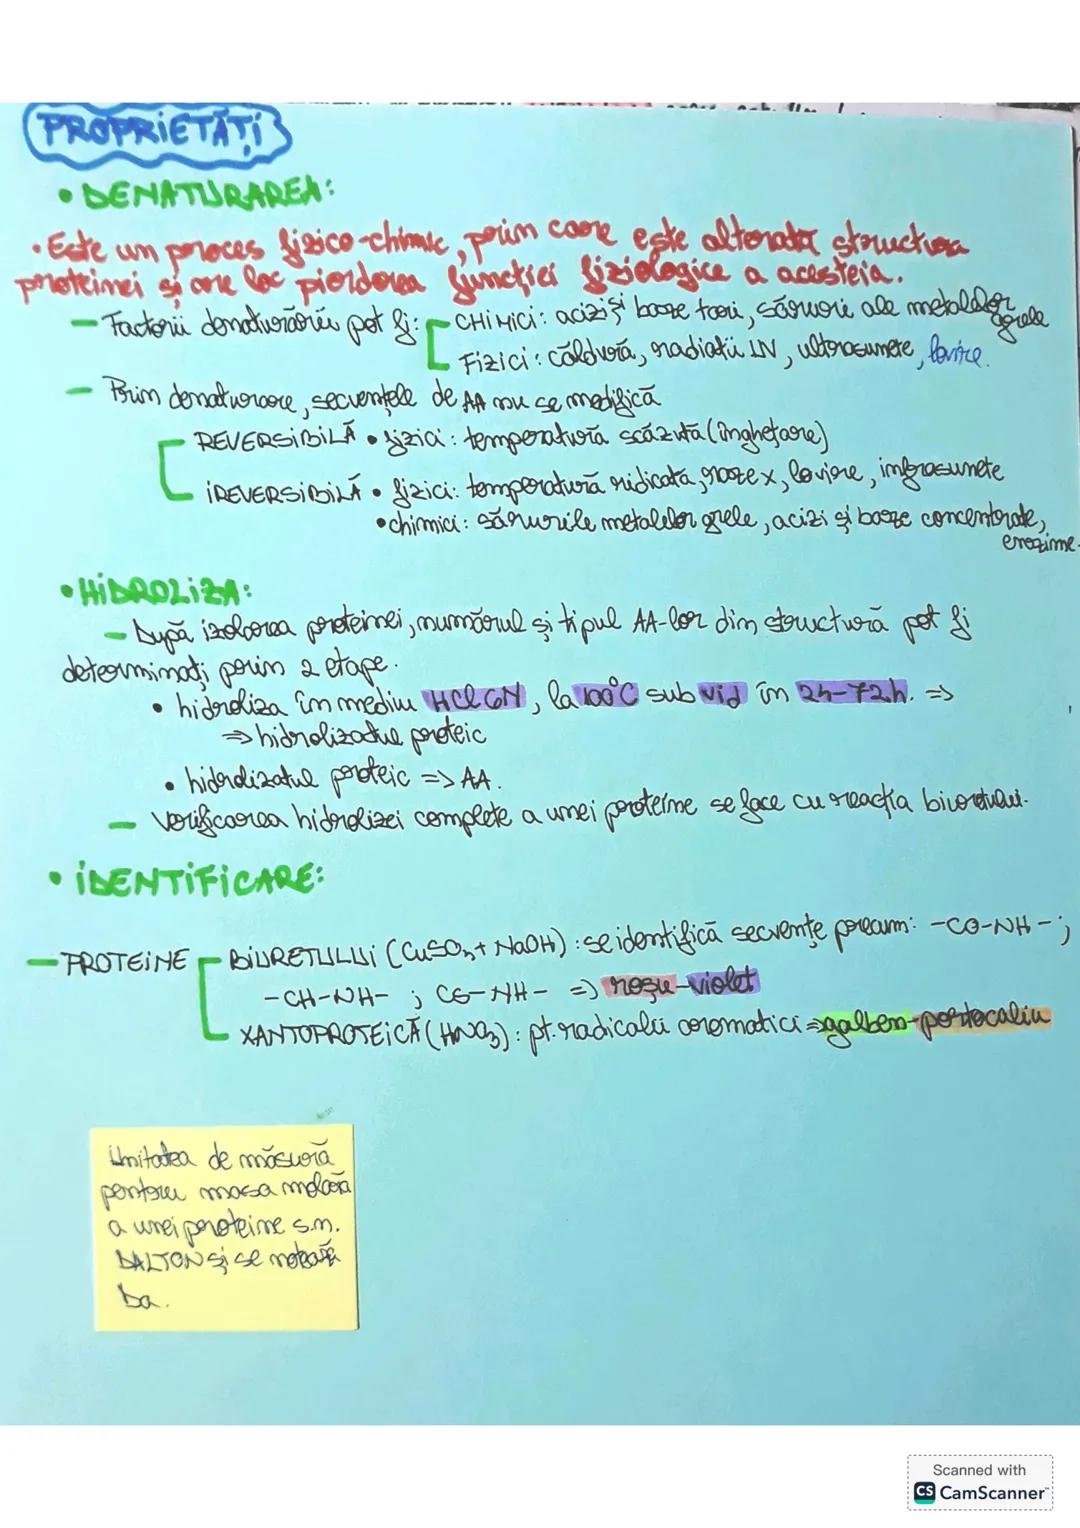 PROPRIETĂȚI
• DENATURAREA:
• Este un proces fizico-chimic, prin care este alterată structura
proteinei și are loc pierderea funcției fiziologice a acesteia.
– Factorii denaturării pot fi: CHIMICI: acizi și baze tari, sărurі ale metalelor grele
FIZICI: căldură, radiații UV, ultrasunete, lovire.
– Prin denaturare, secvențele de AA nu se modifică
REVERSIBILĂ • fizici: temperatură scăzută (înghețare)
IREVERSIBILĂ • fizici: temperatură ridicată, raze x, lovire, infrasunete
• chimici: sărurile metalelor grele, acizi și baze concentrate,
enezime.
• HIDROLIZA:
– După izolarea proteinei, numărul și tipul AA-lor din structură pot fi
determinați prin 2 etape.
• hidroliza în mediu HCl 6N, la 100°C sub vid în 24-72h. =>
=> hidrolizatul proteic
• hidrolizatul proteic => AA.
– Verificarea hidrolizei complete a unei proteine se face cu reacția biuretului.
• IDENTIFICARE:
– PROTEINE BIURETULUI (CuSO4 + NaOH): se identifică secvențe precum: -CO-NH-;
-CH-NH- ; CS-NH- => roșu-violet
XANTOPROTEICĂ (HNO3): pt. radicalii aromatici => galben-portocaliu
Unitatea de măsură
pentru masa molară
a unei proteine s.n.
DALTON și se notează
Da.
Scanned with
CS CamScanner